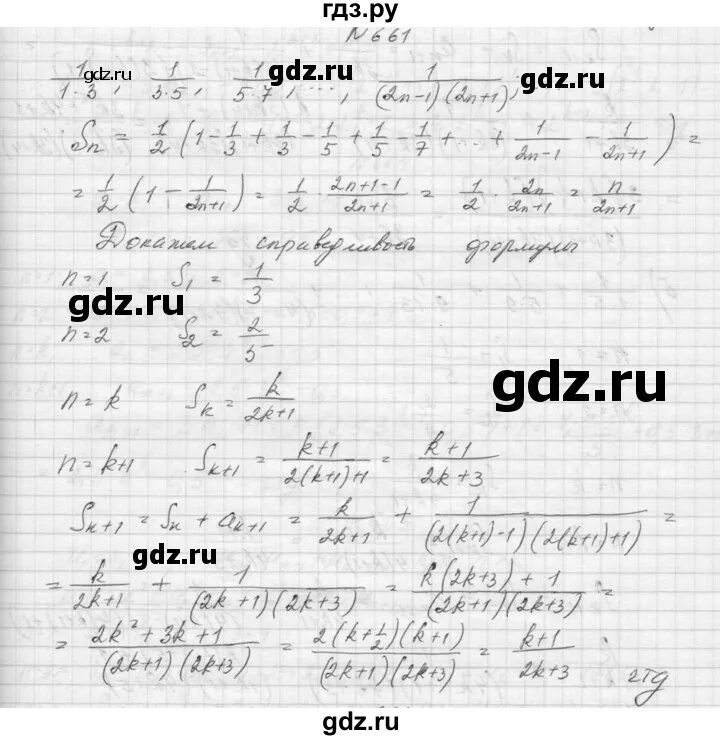 гдз.ру
N 661
1/(1·3), 1/(3·5), 1/(5·7), ..., 1/((2n-1)(2n+1));
gdz.ru
gdz.ru
Sn = 1/2 (1 - 1/3 + 1/3 - 1/5 + 1/5 - 1/7 + ... + 1/(2n-1) - 1/(2n+1)) =
= 1/2 (1 - 1/(2n+1)) = 1/2 · (2n+1-1)/(2n+1) = 1/2 · 2n/(2n+1) = n/(2n+1)
Докажем справедливость формулы
n=1 S1 = 1/3
gdz.ru
n=2 S2 = 2/5
gdz.ru
n=k Sk = k/(2k+1)
n=k+1 Sk+1 = (k+1)/(2(k+1)+1) = (k+1)/(2k+3)
Sk+1 = Sk + ak+1 = k/(2k+1) + 1/((2(k+1)-1)(2(k+1)+1)) =
gdz.ru
= k/(2k+1) + 1/((2k+1)(2k+3)) = (k(2k+3)+1)/((2k+1)(2k+3)) =
= (2k²+3k+1)/((2k+1)(2k+3)) = (2(k+1/2)(k+1))/((2k+1)(2k+3)) = (k+1)/(2k+3) чтд
gdz.ru
gdz.ru